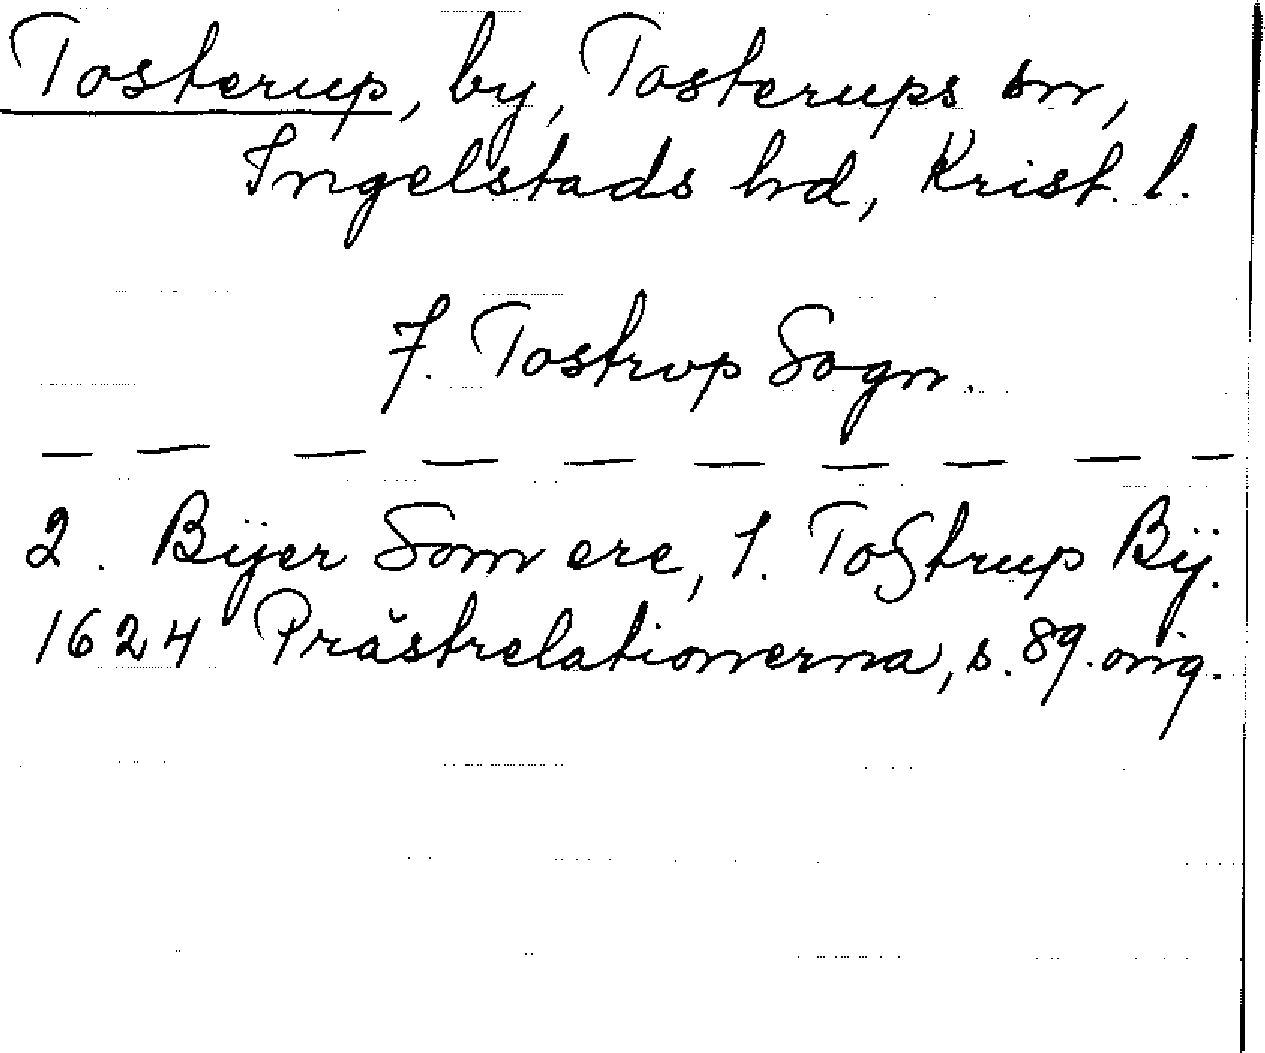 Tosterup, by, Tosterups sn,
Ingelstads hd, Krist. l.
7. Tostrvp Sogn.
— — — — — — — — — —
2. Bÿer Som ere, 1. Toßtrup Bÿ.
1624 Prästrelationerna, s. 89. orig.